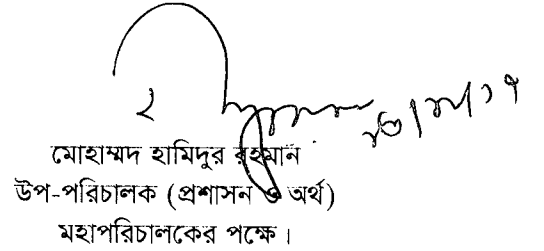 মোহাম্মদ হামিদুর রহমান
উপ-পরিচালক (প্রশাসন ও অর্থ)
মহাপরিচালকের পক্ষে।